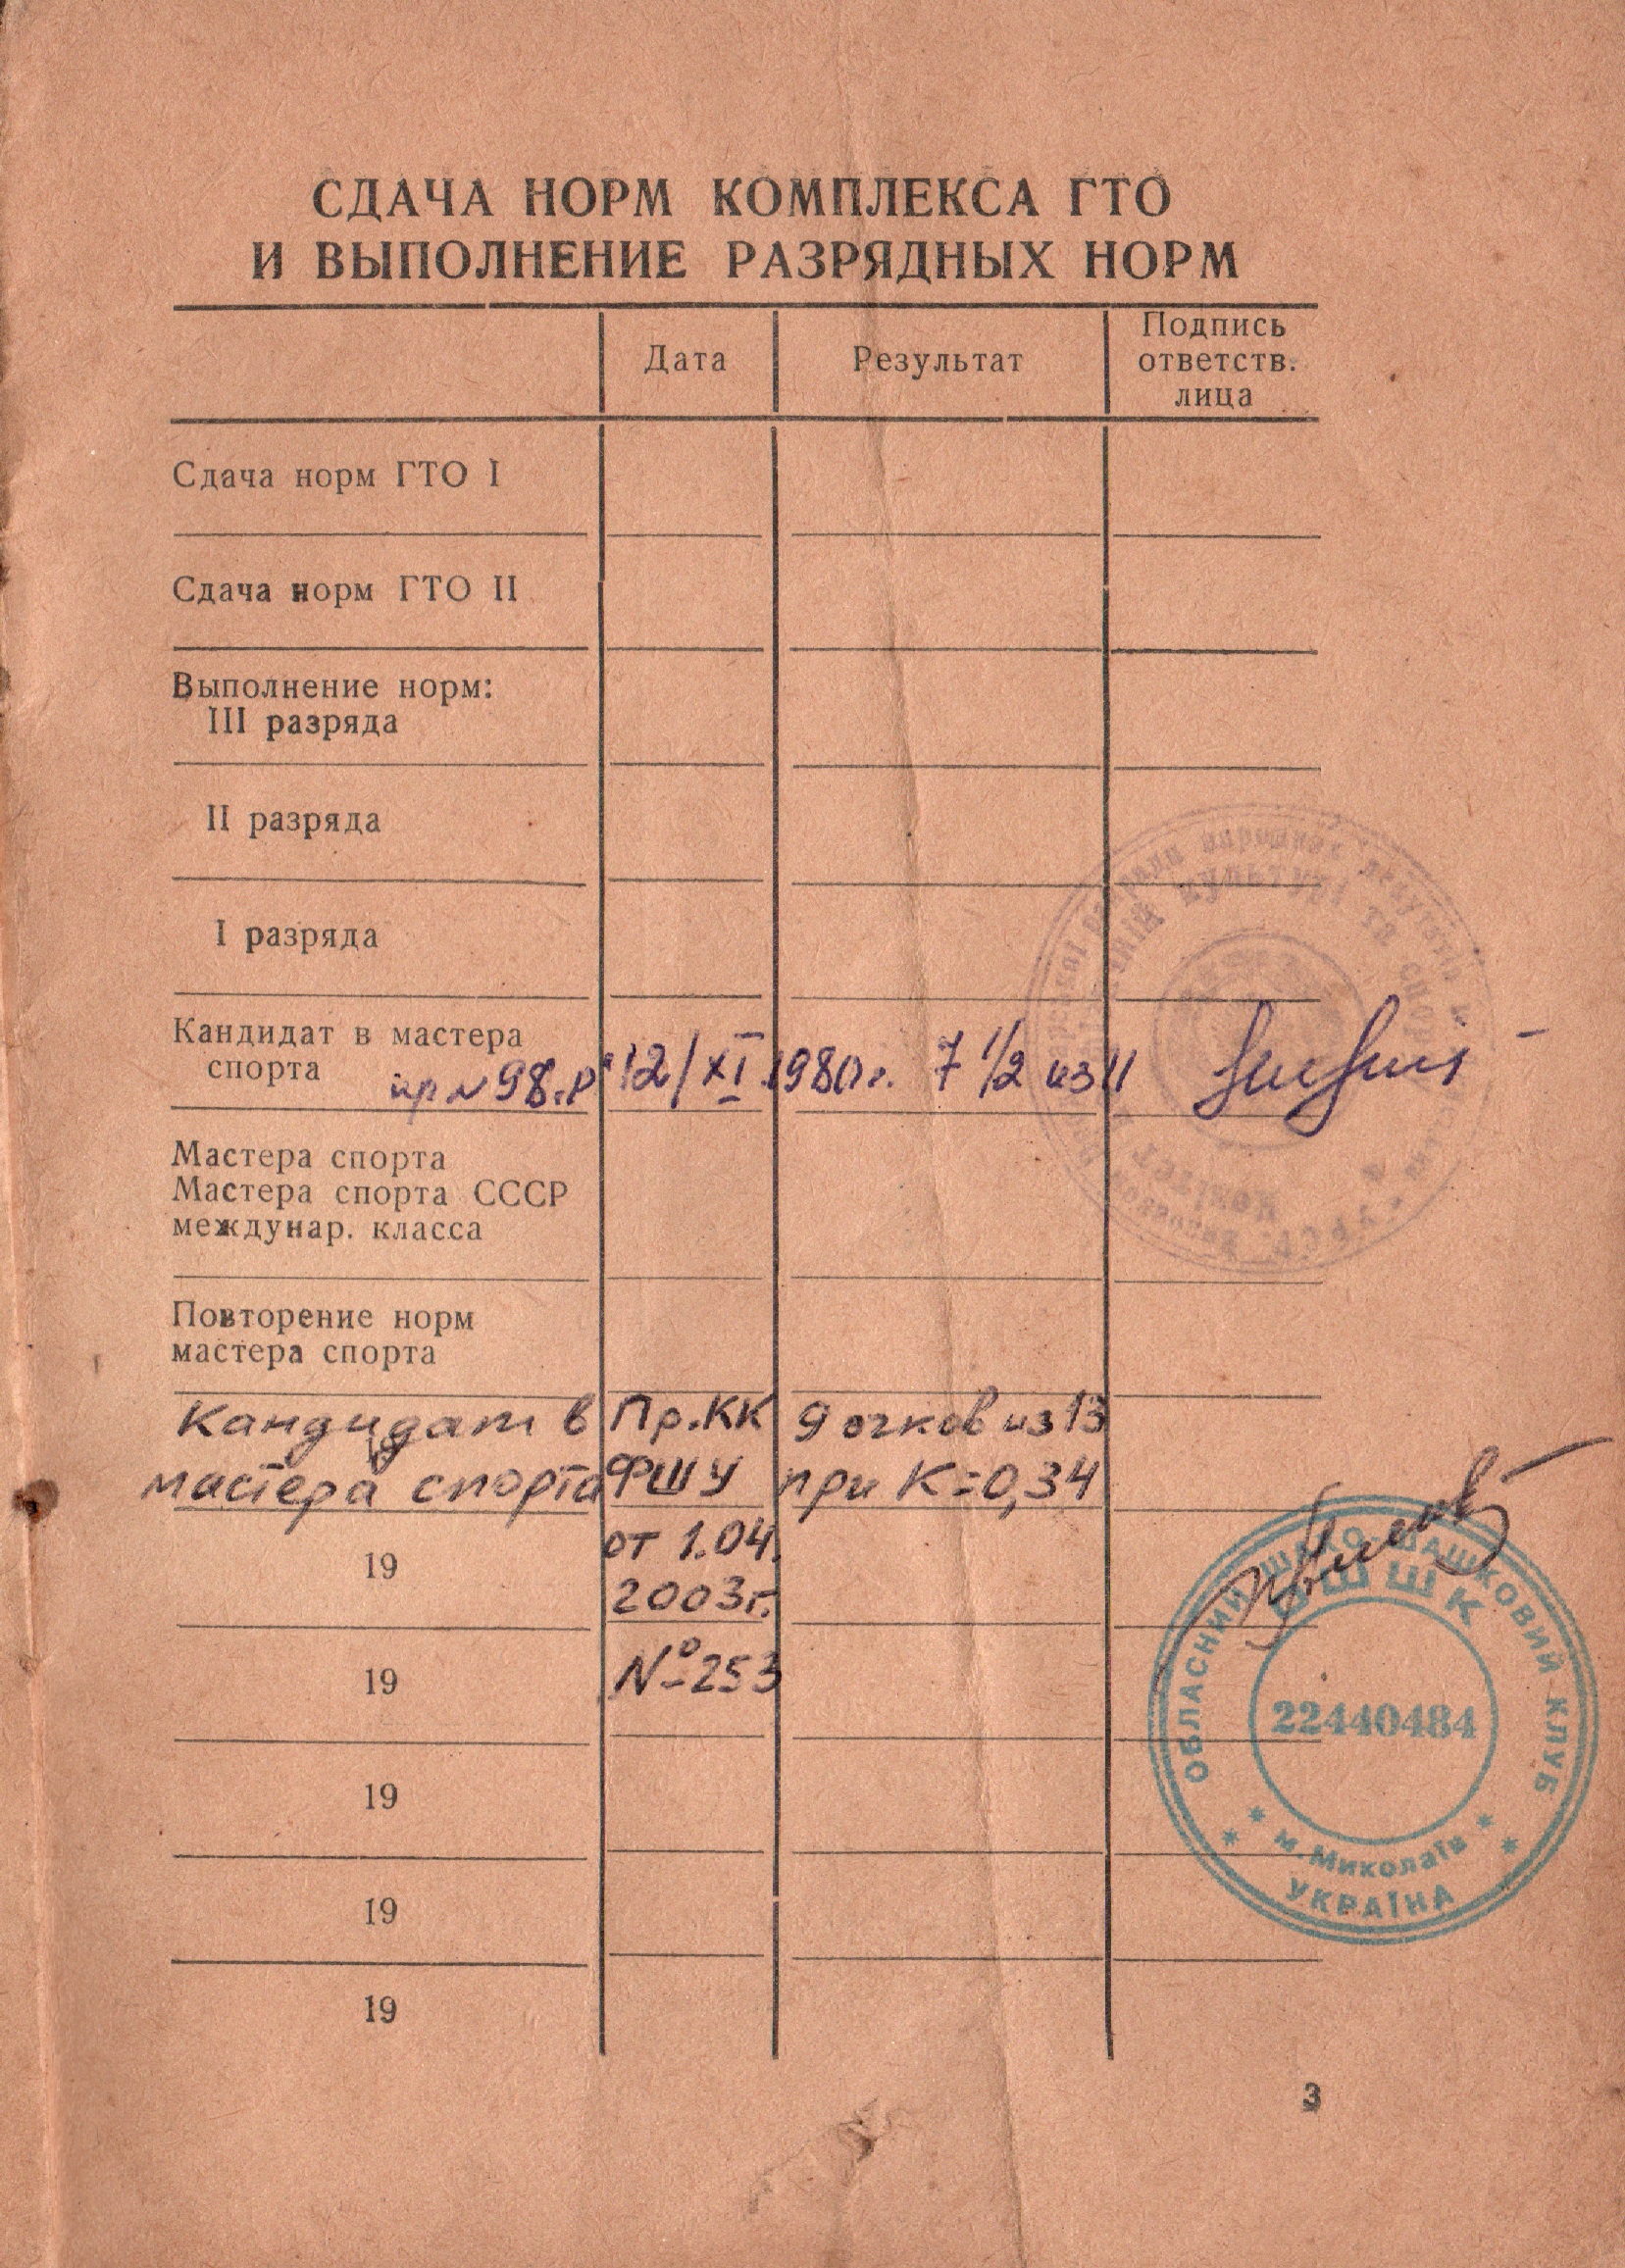 СДАЧА НОРМ КОМПЛЕКСА ГТО
И ВЫПОЛНЕНИЕ РАЗРЯДНЫХ НОРМ
Дата
Результат
Подпись
ответств.
лица
Сдача норм ГТО I
Сдача норм ГТО II
Выполнение норм:
III разряда
II разряда
I разряда
Кандидат в мастера
спорта
пр №98.р 12/XI 1980г. 7 1/2 из 11
Мастера спорта
Мастера спорта СССР
междунар. класса
Повторение норм
мастера спорта
Кандидат в Пр.КК 9 очков из 13
мастера спорта ФШУ при К=0,34
от 1.04.
19
2003г.
19 №253
19
19
19
культурі та
комітет
ОБЛАСНИЙ ШАХО-ШАШКОВИЙ КЛУБ
ОШШК
22440484
м. Миколаїв
УКРАЇНА
3